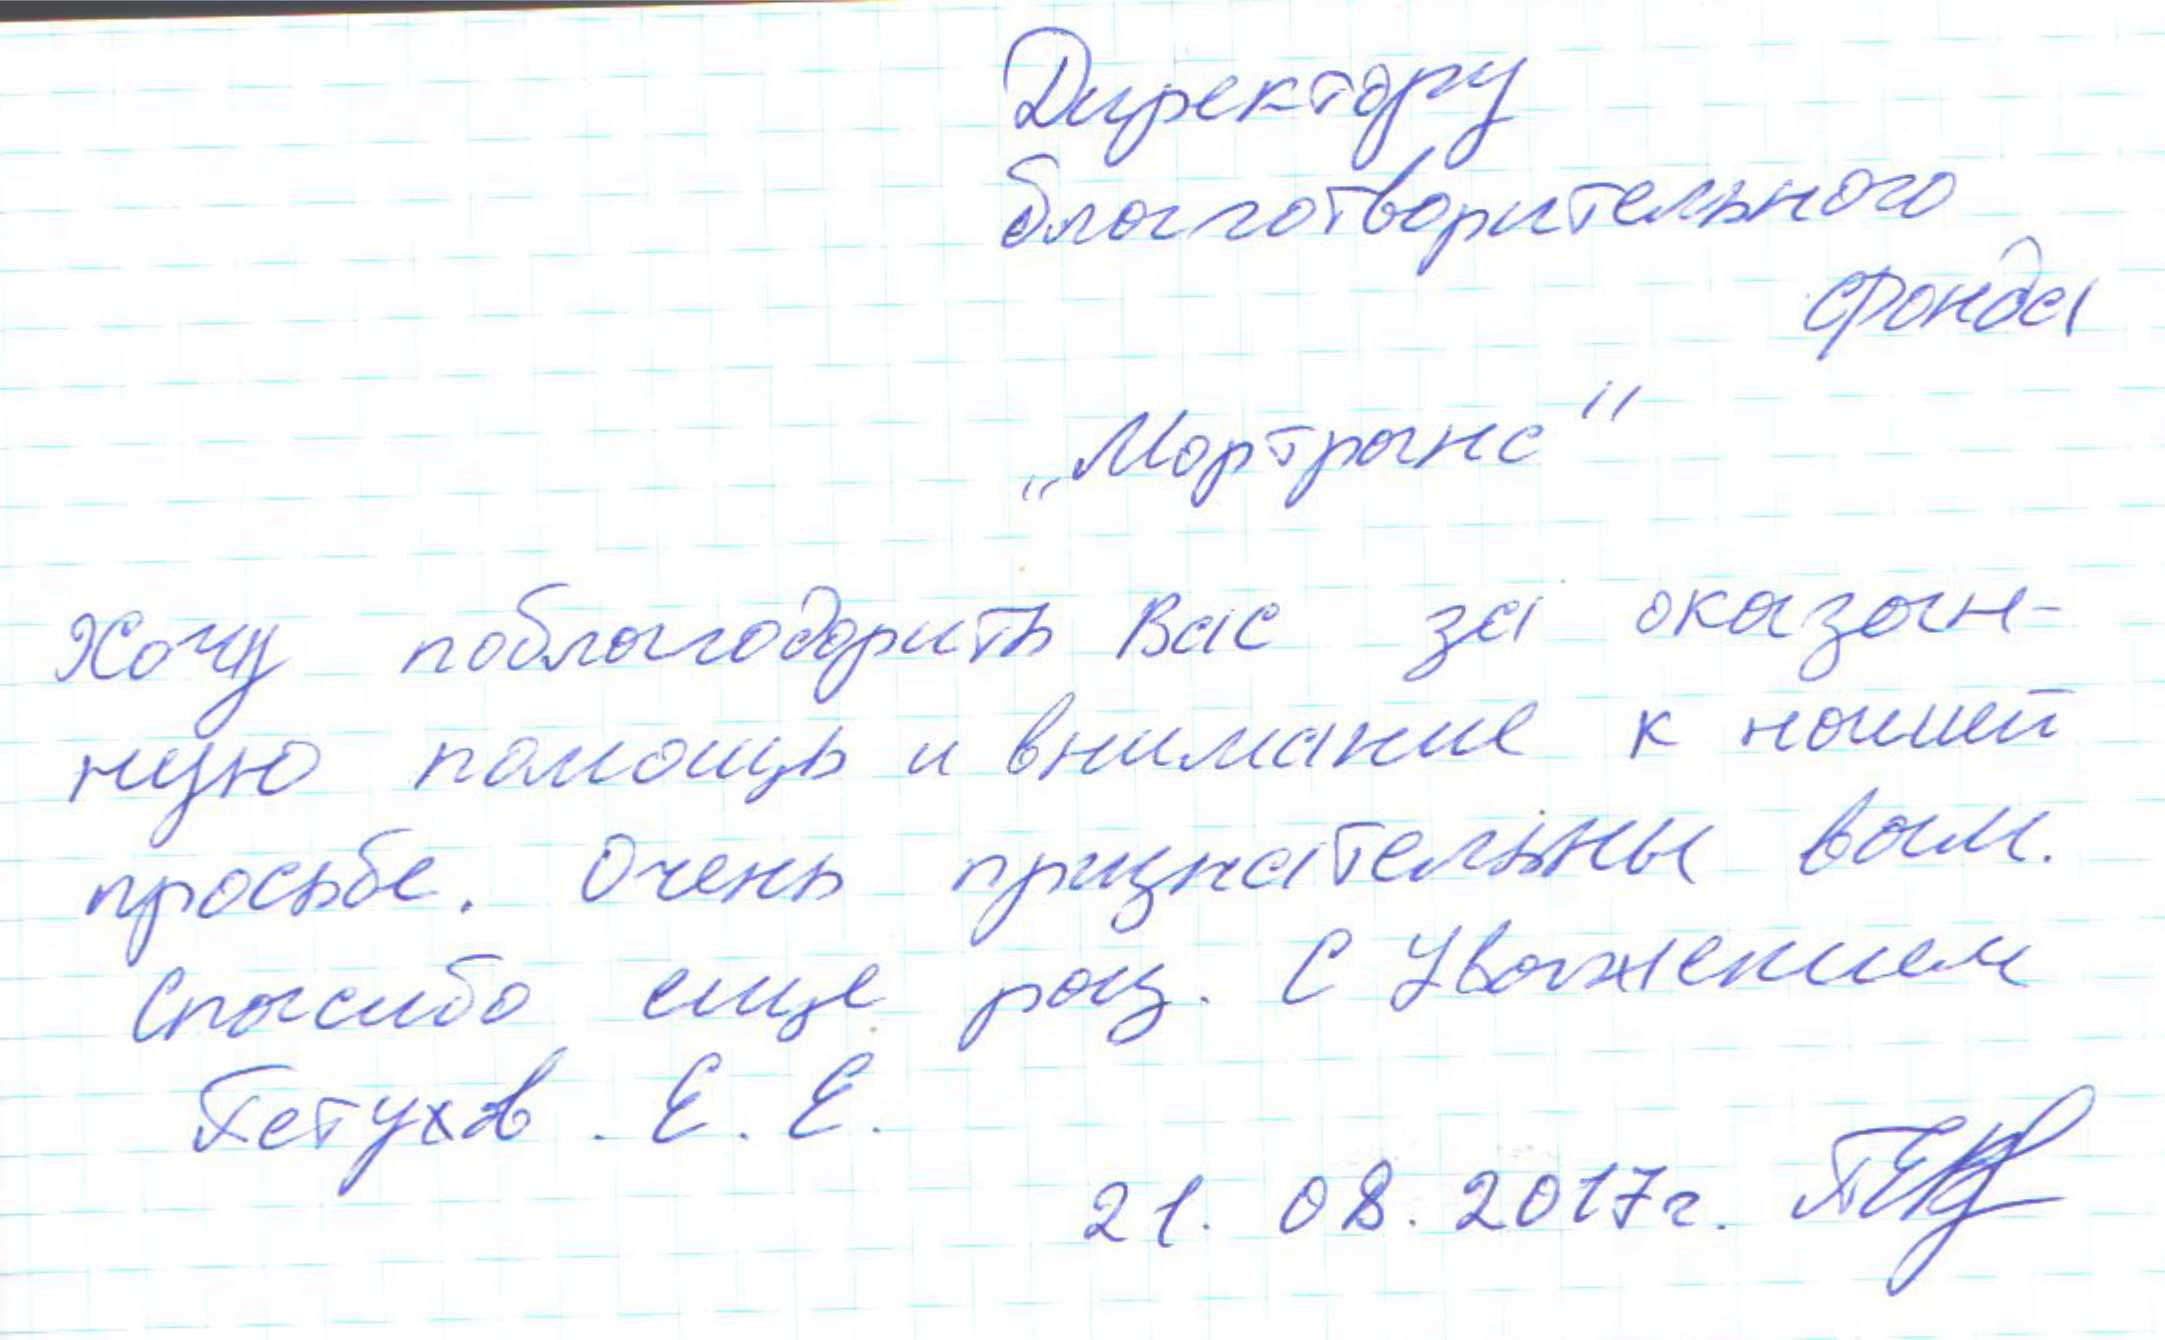 Директору
благотворительного
фонда
„Мортранс"
Хочу поблагодарить Вас за оказан-
ную помощь и внимание к нашей
просьбе. Очень признательны вам.
Спасибо еще раз. С Уважением
Петухов. Е. Е.
21. 08. 2017г.